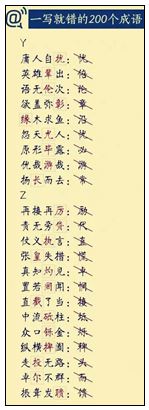 一写就错的200个成语
Y
庸人自扰:
英雄辈出:
语无伦次: 论
欲盖弥彰: 章
缘木求鱼: 沿
怨天尤人: 忧
原形毕露: 必
优哉游哉:
扬长而去:
Z
再接再厉: 励
责无旁贷: 代
仗义执言: 直
张皇失措: 慌
真知灼见: 卓
置若罔闻:
直截了当: 接
中流砥柱:
众口铄金: 烁
纵横捭阖:
走投无路: 头
卓尔不群: 而
振聋发聩: